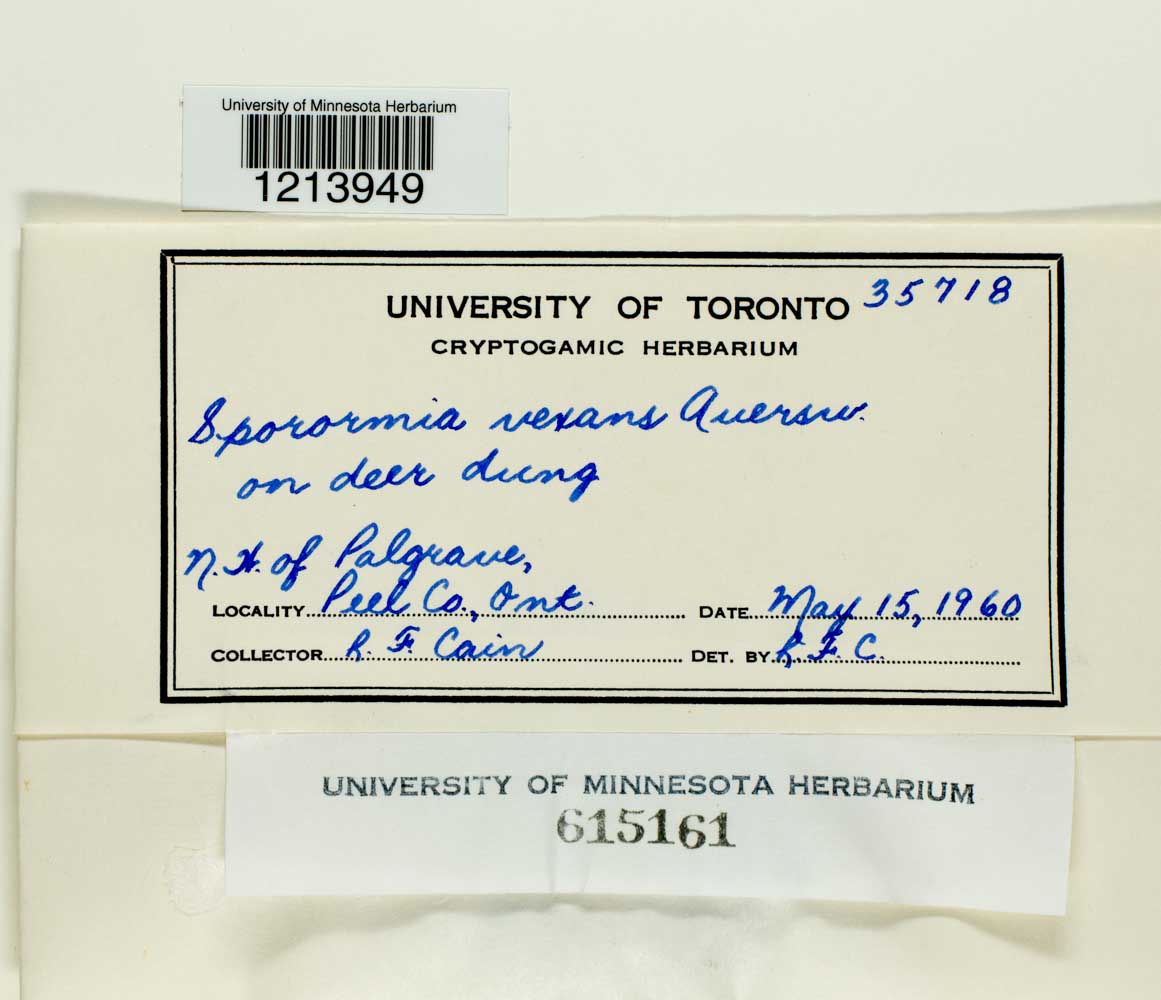 University of Minnesota Herbarium
1213949
UNIVERSITY OF TORONTO 35718
CRYPTOGAMIC HERBARIUM
Sporormia vexans Auersw.
on deer dung
N.W. of Palgrave,
LOCALITY Peel Co., Ont. DATE May 15, 1960
COLLECTOR R. F. Cain DET. BY R. F. C.
UNIVERSITY OF MINNESOTA HERBARIUM
615161